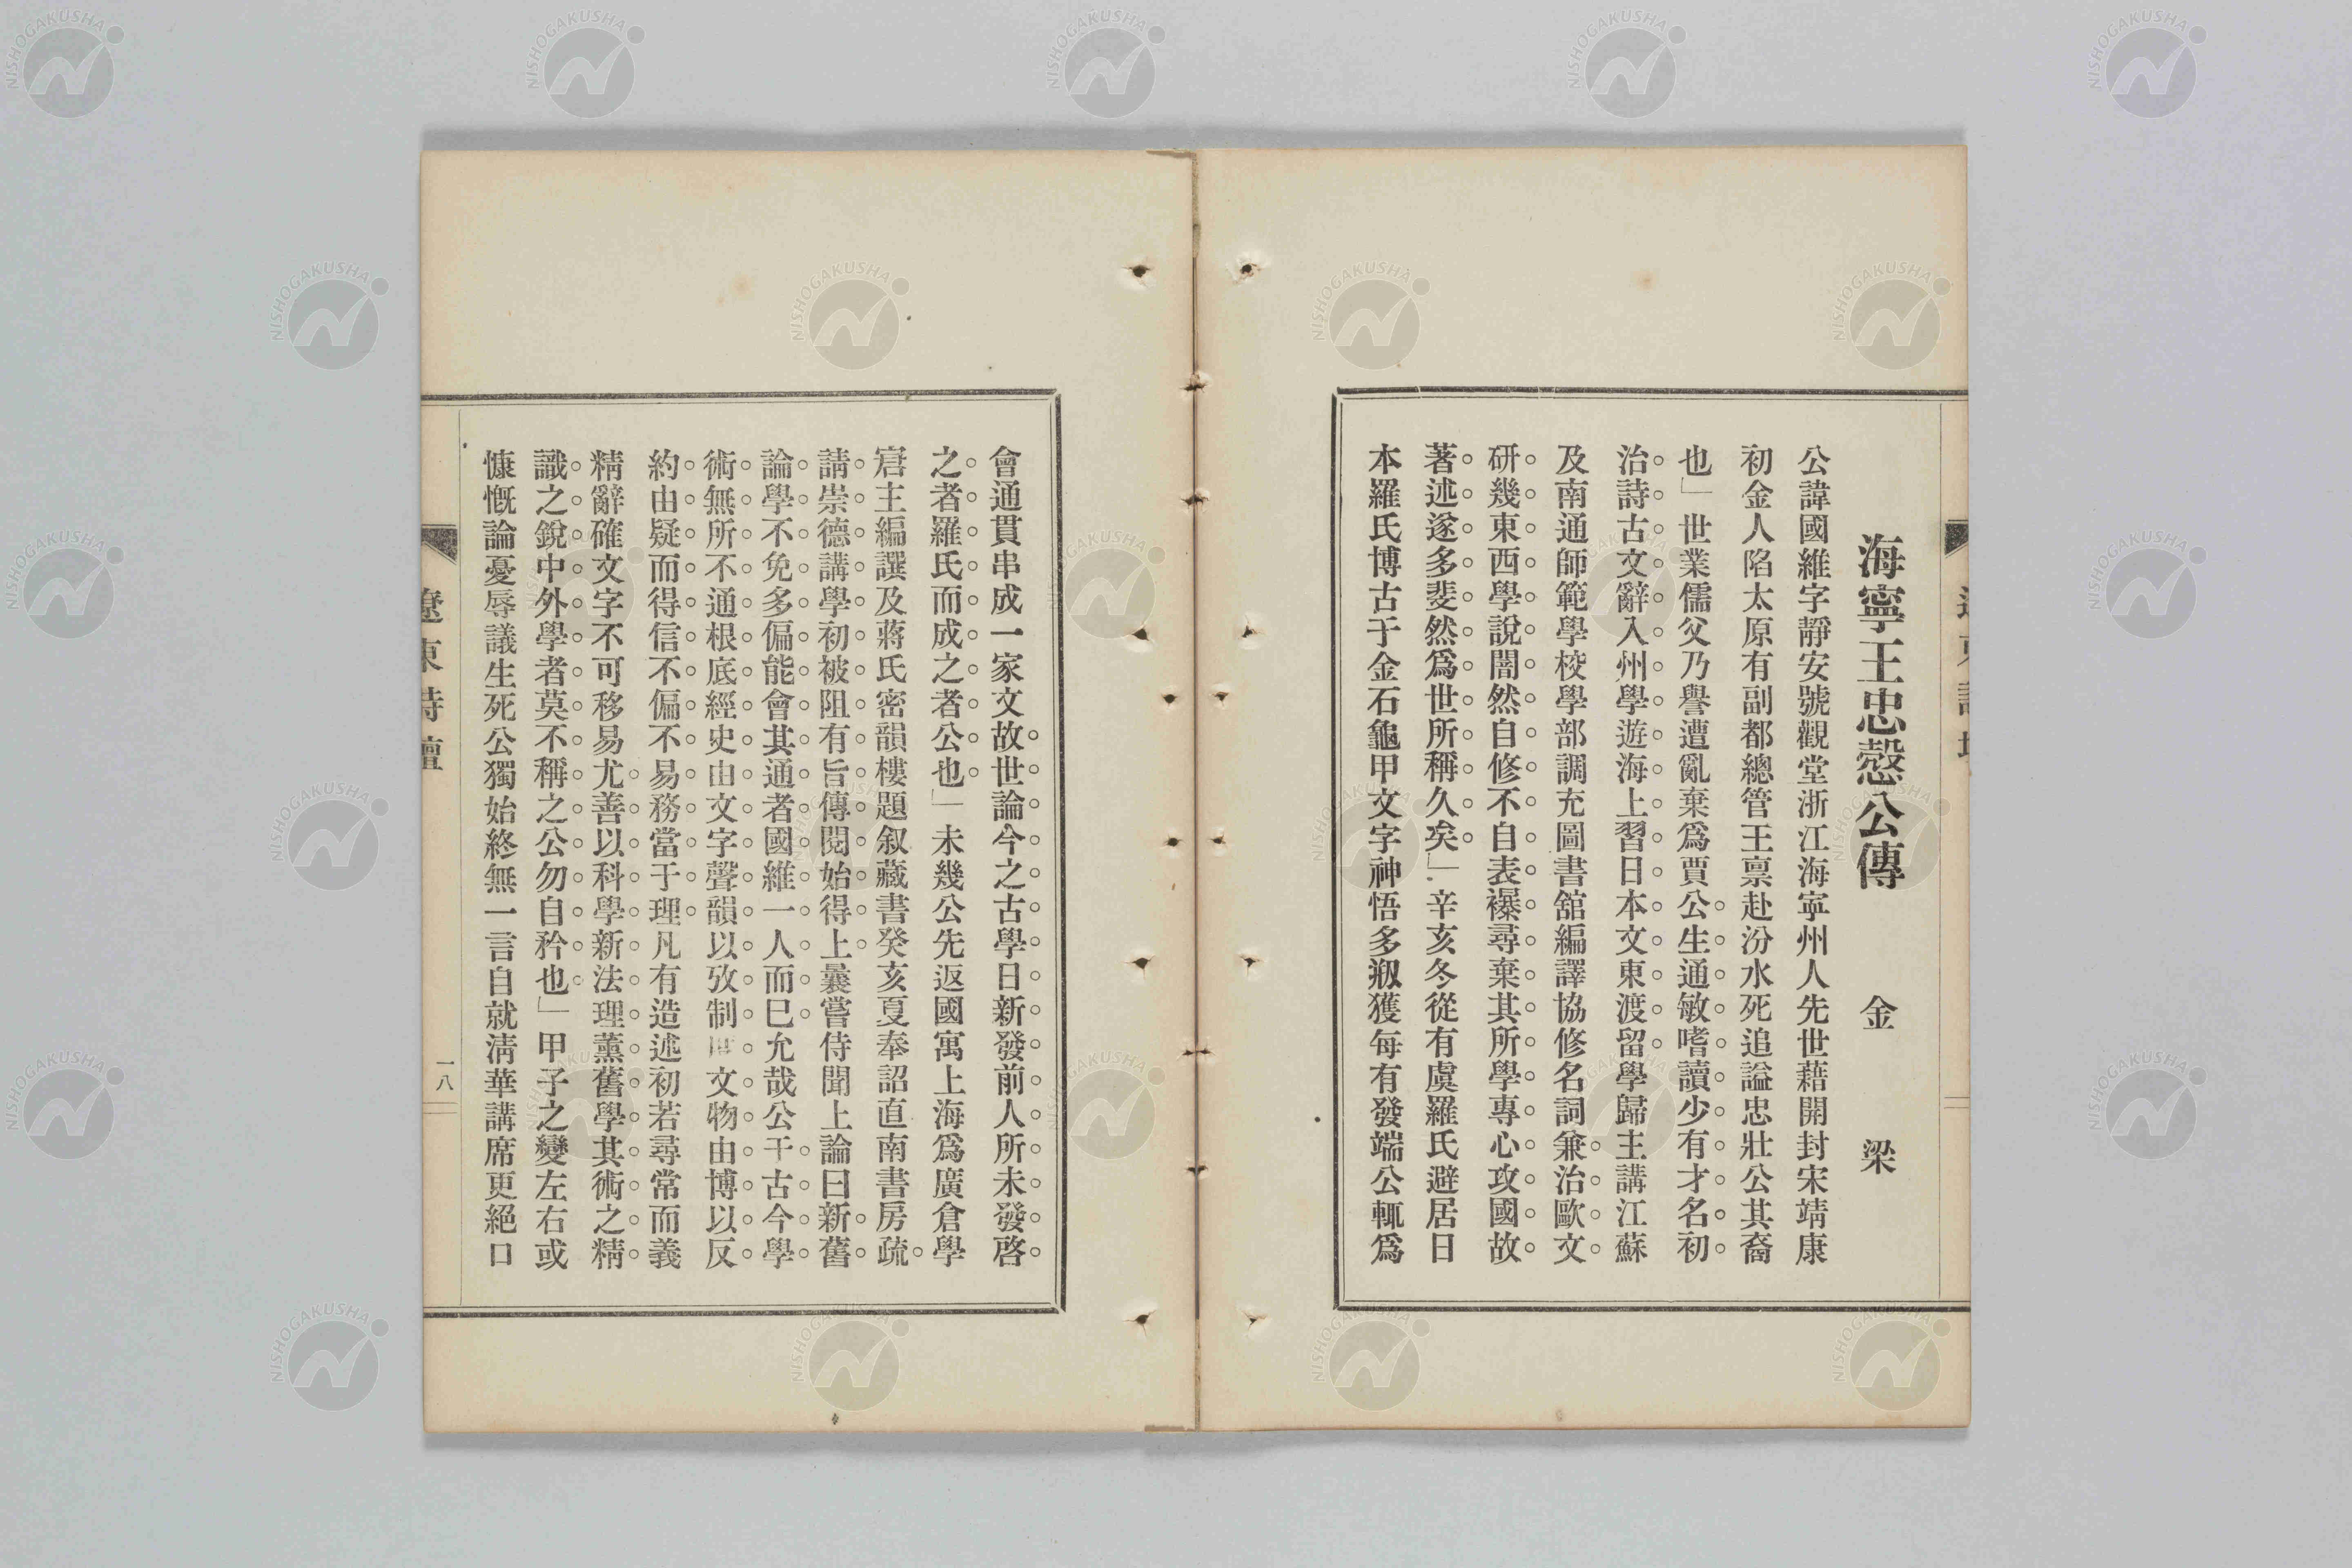 海寧王忠慤公傳　金　梁
公諱國維字靜安號觀堂浙江海寧州人先世藉開封宋靖康
初金人陷太原有副都總管王禀赴汾水死追謚忠壯公其裔
也」世業儒父乃譽遭亂棄爲賈公生通敏嗜讀少有才名初
治詩古文辭入州學遊海上習日本文東渡留學歸主講江蘇
及南通師範學校學部調充圖書舘編譯協修名詞兼治歐文
研幾東西學說闇然自修不自表襮尋棄其所學專心攻國故
著述遂多斐然爲世所稱久矣」辛亥冬從有虞羅氏避居日
本羅氏博古于金石龜甲文字神悟多剏獲每有發端公輒爲
會通貫串成一家文故世論今之古學日新發前人所未發啓
之者羅氏而成之者公也」未幾公先返國寓上海爲廣倉學
宭主編譔及蔣氏密韻樓題叙藏書癸亥夏奉詔直南書房疏
請崇德講學初被阻有旨傳閱始得上曩嘗侍聞上論曰新舊
論學不免多偏能會其通者國維一人而巳允哉公干古今學
術無所不通根底經史由文字聲韻以攷制文物由博以反
約由疑而得信不偏不易務當于理凡有造述初若尋常而義
精辭確文字不可移易尤善以科學新法理薰舊學其術之精
識之銳中外學者莫不稱之公勿自矜也」甲子之變左右或
慷慨論憂辱議生死公獨始終無一言自就淸華講席更絕口
遼東詩壇
一八
NISHOGAKUSHA